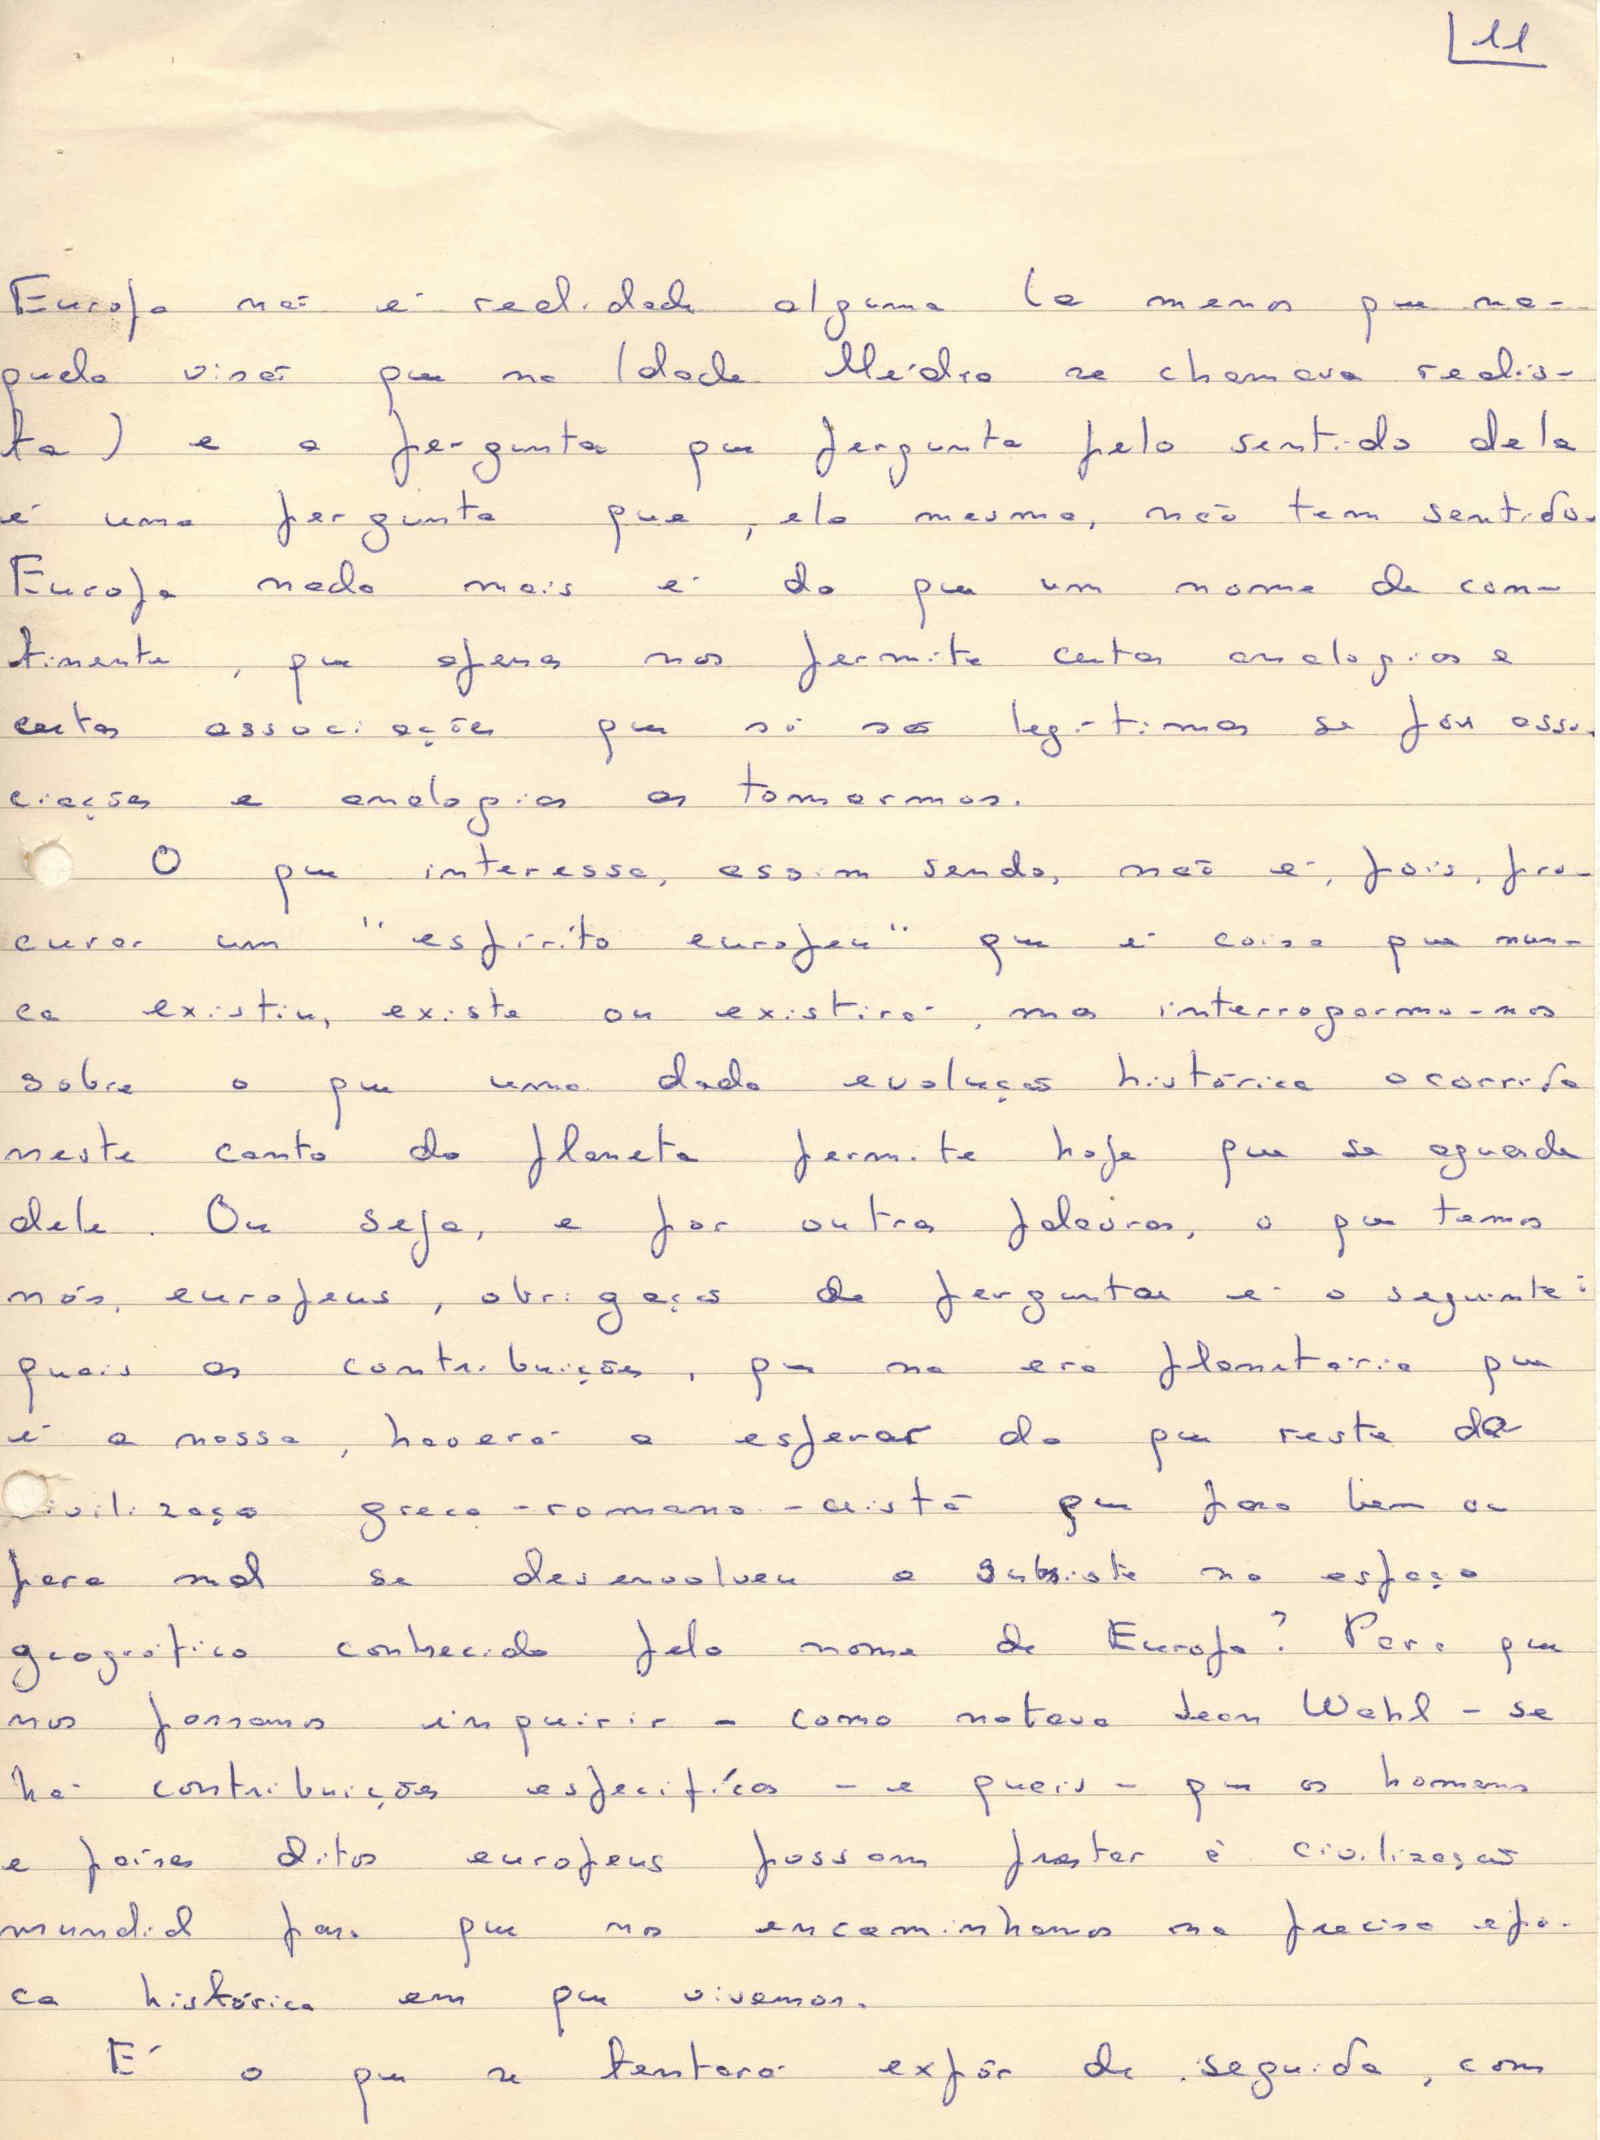 11
Europa não é realidade alguma (a menos que na-
quela visão que na Idade Média se chamava realis-
ta) e a pergunta que pergunta pelo sentido dela
é uma pergunta que, ela mesma, não tem sentido.
Europa nada mais é do que um nome de con-
tinente, que apenas nos permite certas analogias e
certas associações que só são legítimas se por asso-
ciações e analogias as tomarmos.
O que interessa, assim sendo, não é, pois, pro-
curar um "espírito europeu" que é coisa que nun-
ca existiu, existe ou existirá, mas interrogarmo-nos
sobre o que uma dada evolução histórica ocorrida
neste canto do planeta permite hoje que se aguarde
dele. Ou seja, e por outras palavras, o que temos
nós, europeus, obrigação de perguntar é o seguinte:
quais as contribuições, que na era planetária que
é a nossa, haverá a esperar do que reste da
civilização greco-romano-cristã que para bem ou
para mal se desenvolveu e subsiste no espaço
geográfico conhecido pelo nome de Europa? Para que
nos possamos inquirir - como notava Jean Wahl - se
há contribuições específicas - e quais - que os homens
e países ditos europeus possam prestar à civilização
mundial para que nos encaminhamos na precisa épo-
ca histórica em que vivemos.
É o que se tentará expôr de seguida, com